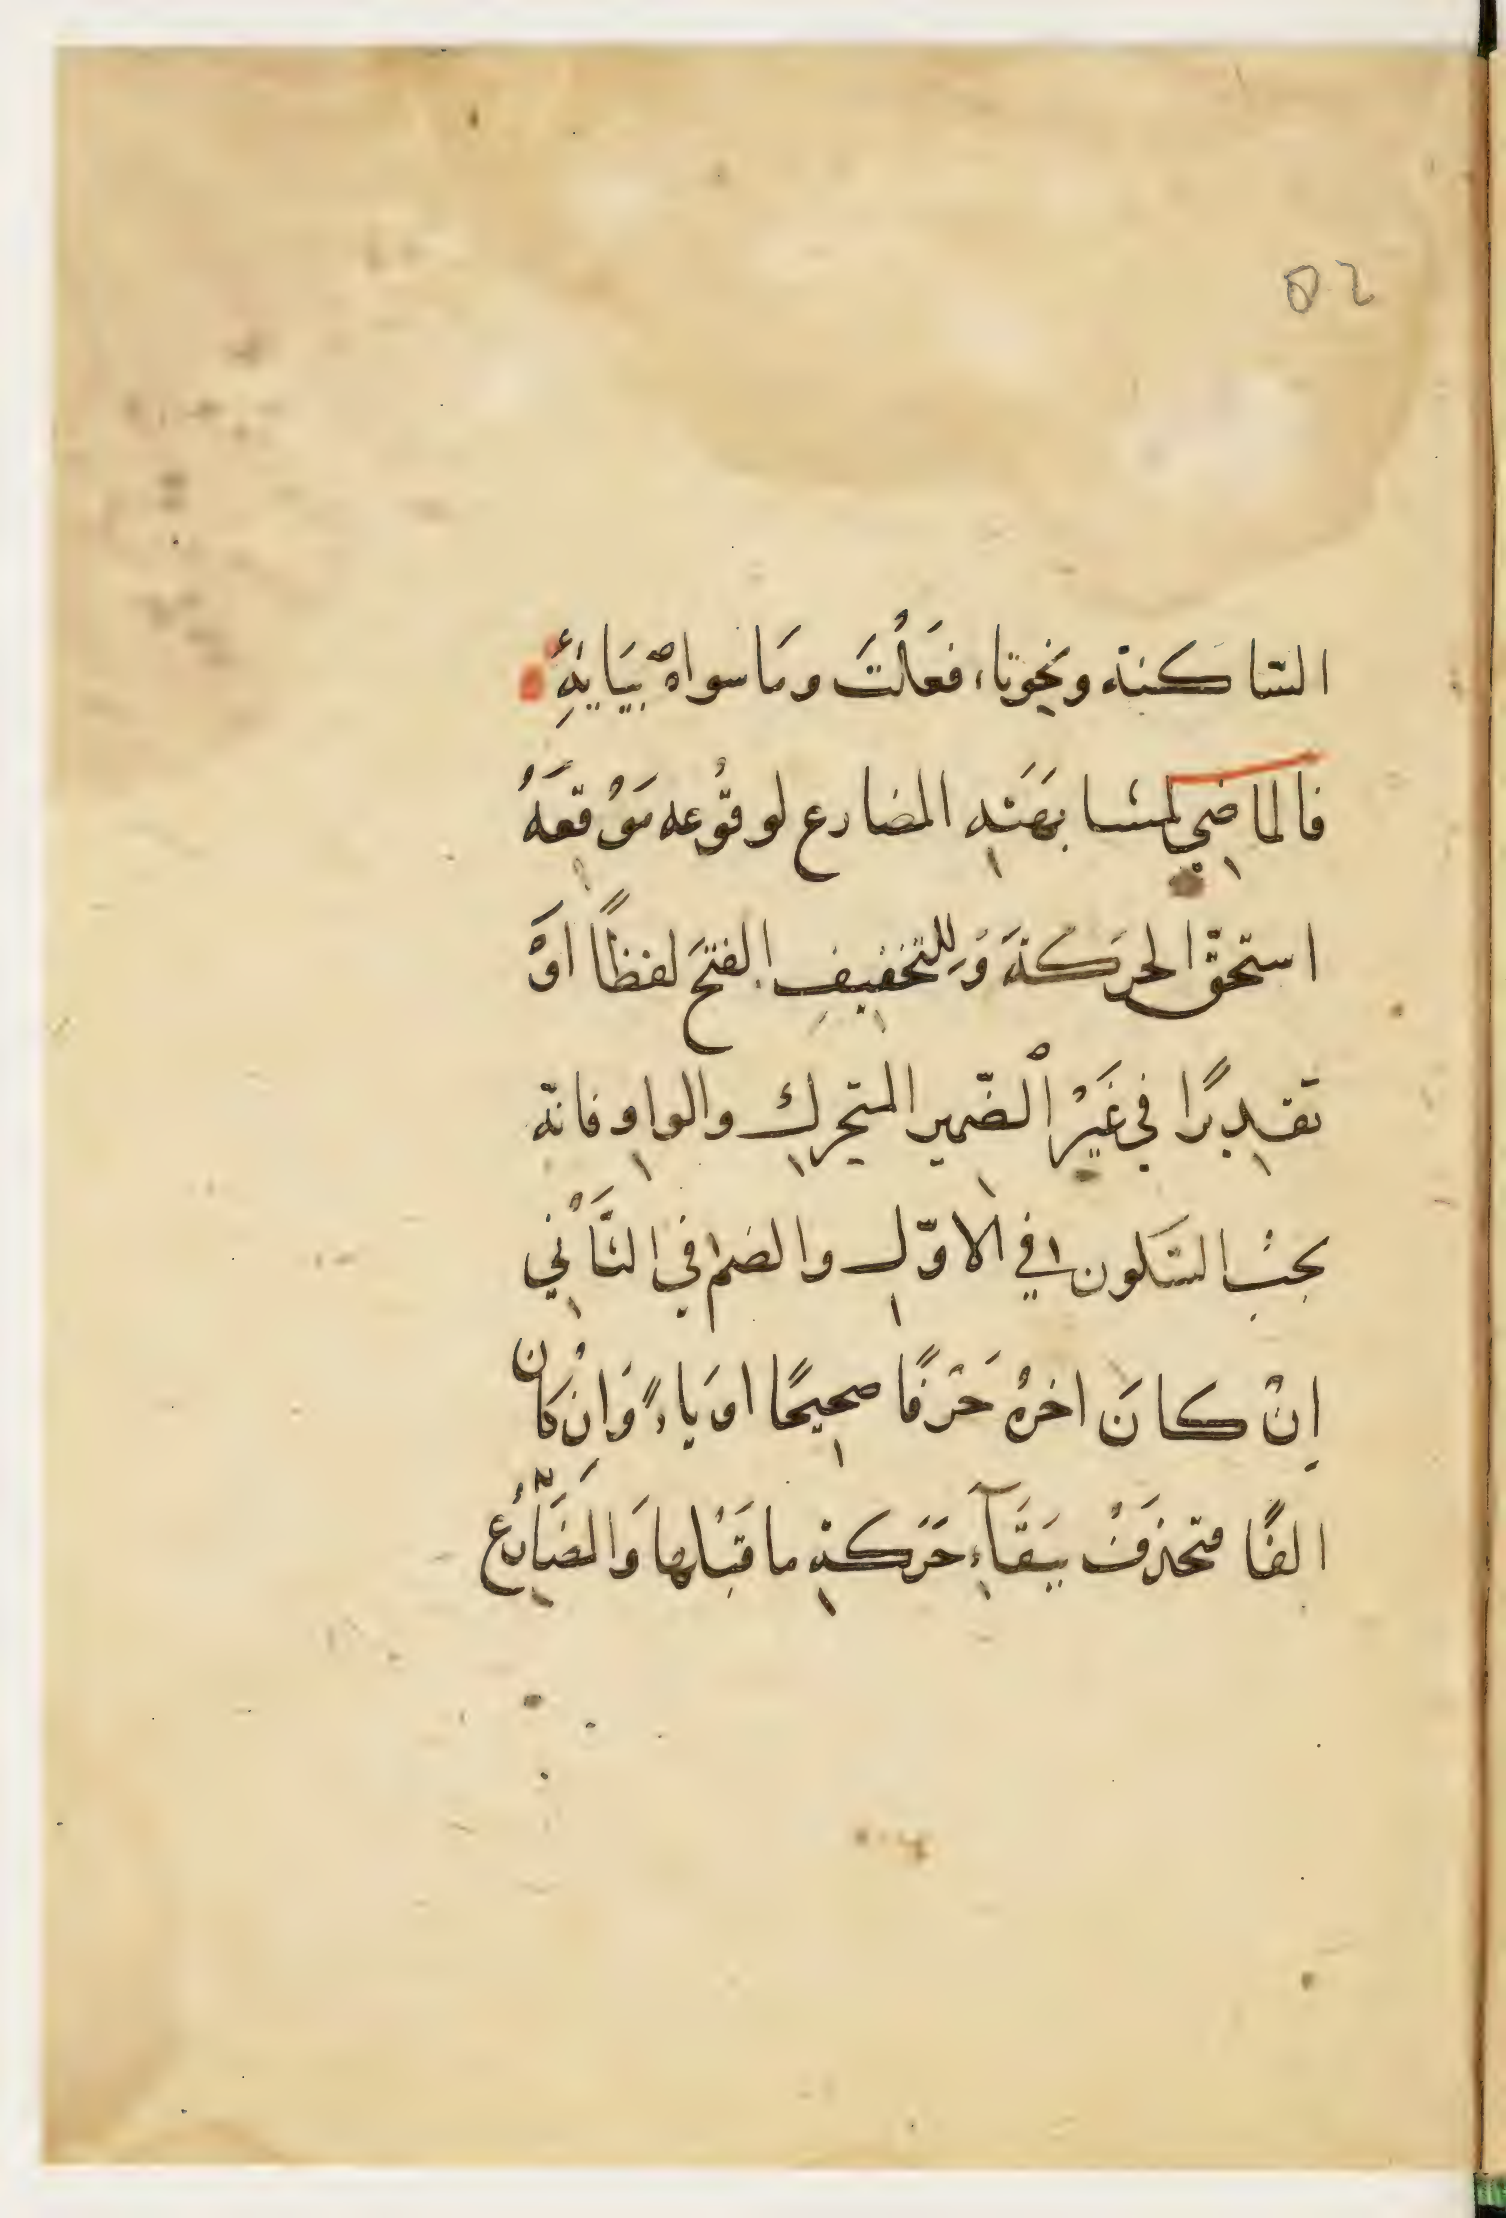 ٥٢
السّاكنة ونحوتاء فعَلْتَ ومَا سواهُ بيَانِيّة
فالماضِي لمشابهَتهِ المضارع لوقُوعه مَوْقعَهُ
استحقّ الحرَكةَ وَللتخفيفِ الفتحَ لفظًا اوْ
تقديرًا في غَيْر الْضّمير المتحرك والواو فانّه
يجبُ السّكون في الاوّل والضم في الثَّاني
اِنْ كانَ اخرهُ حَرْفًا صحيحًا اوَ ياءً وَاِنْ كَان
الفًا فتحذفْ ببَقَآءِ حَرَكةِ ما قَبْلها وَالمضَارُع